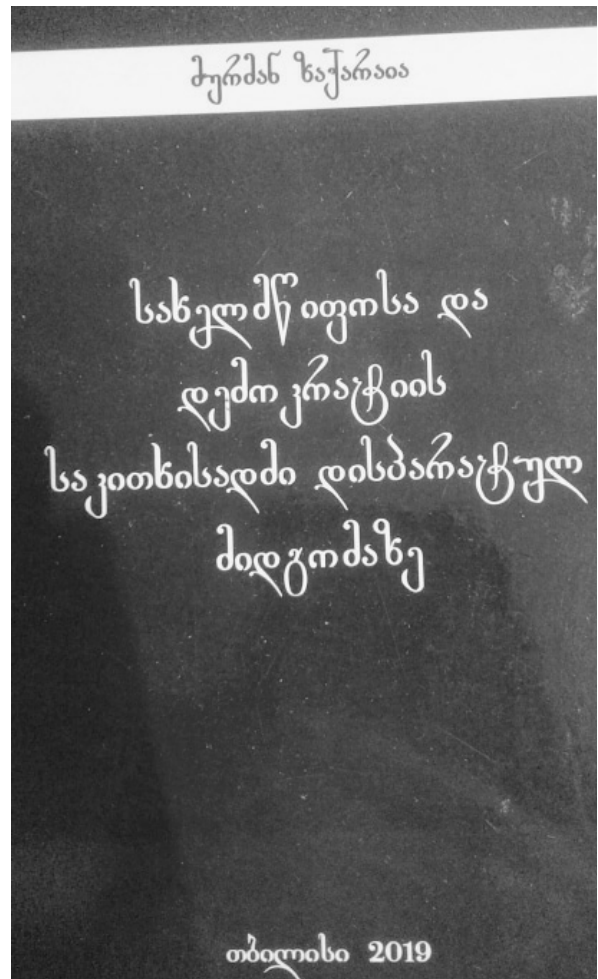 მურმან ზაქარაია
სახელმწიფოსა და
დემოკრატიის
საკითხისადმი დისპარატულ
მიდგომაზე
თბილისი 2019